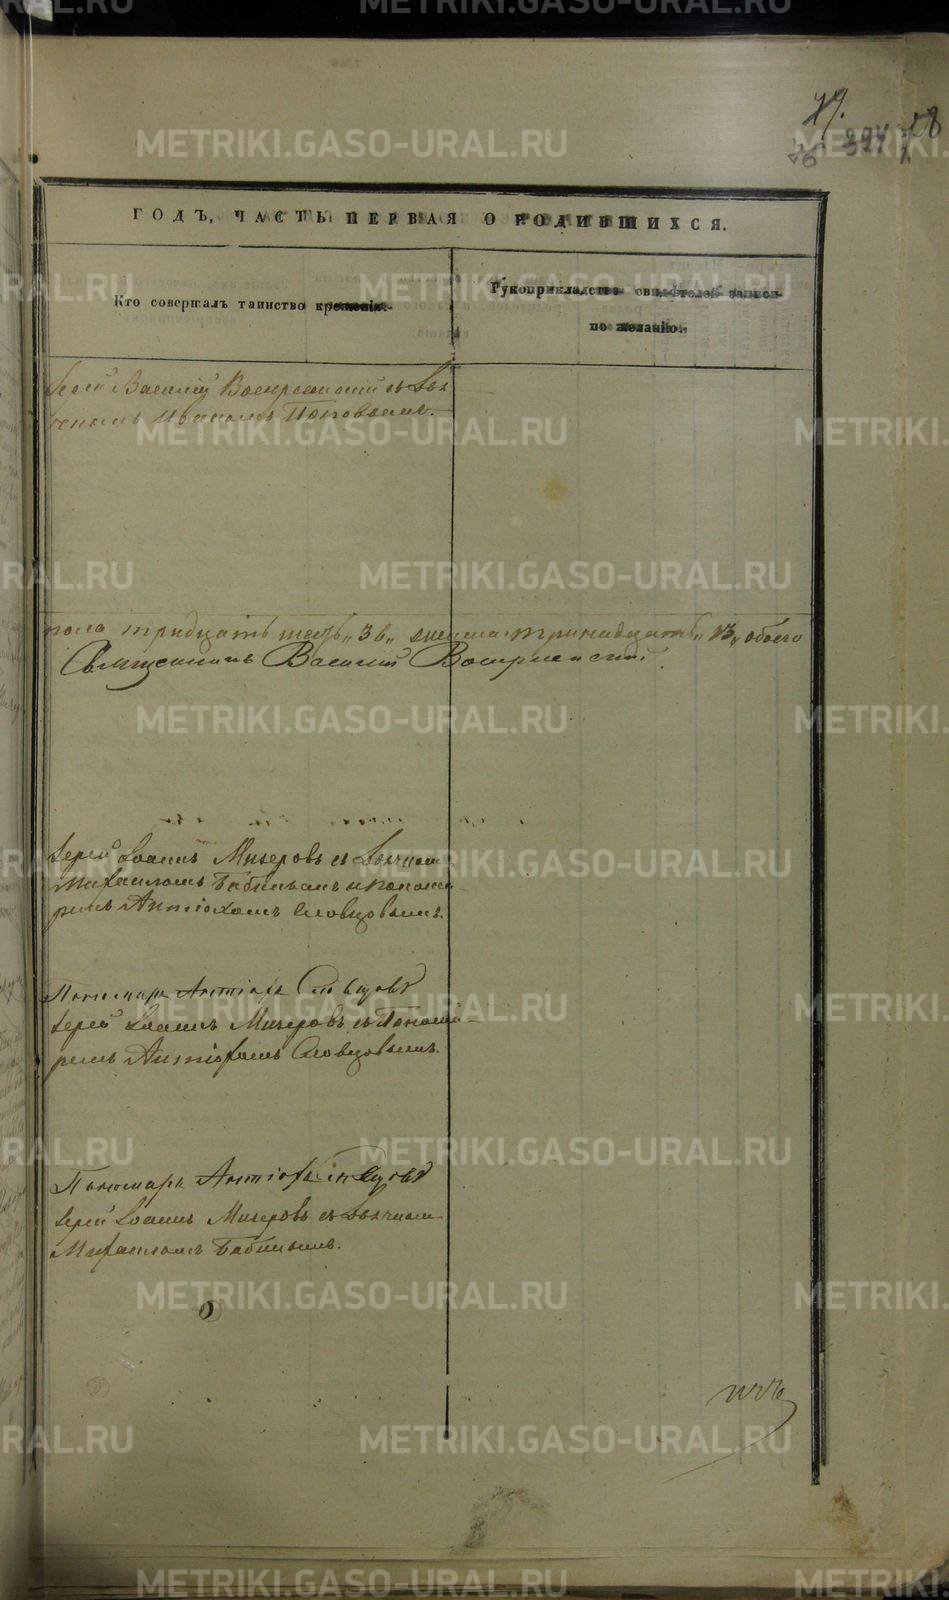 METRIKI.GASO-URAL.RU
79.
324
ГОДЪ, ЧАСТЬ ПЕРВАЯ О РОДИВШИХСЯ.
Кто совершалъ таинство крещенія.
Рукоприкладство свидѣтелей записи
по желанію.
Іерей Василій Воскресенскій съ Дья
Поповымъ.
пола тридцать „36„ тринадцать „13„ обоего
Священникъ Василій Воскресенскій.
Іерей Іоаннъ Мизеровъ съ Дьячкомъ
Михаиломъ Бабинымъ и понома
ремъ Антіохомъ Словцовымъ.
Пономарь Антіохъ Словцовъ
Іерей Іоаннъ Мизеровъ съ Понома
ремъ Антіохомъ Словцовымъ.
Пономарь Антіохъ Словцовъ
Іерей Іоаннъ Мизеровъ съ Дьячкомъ
Михаиломъ Бабинымъ.